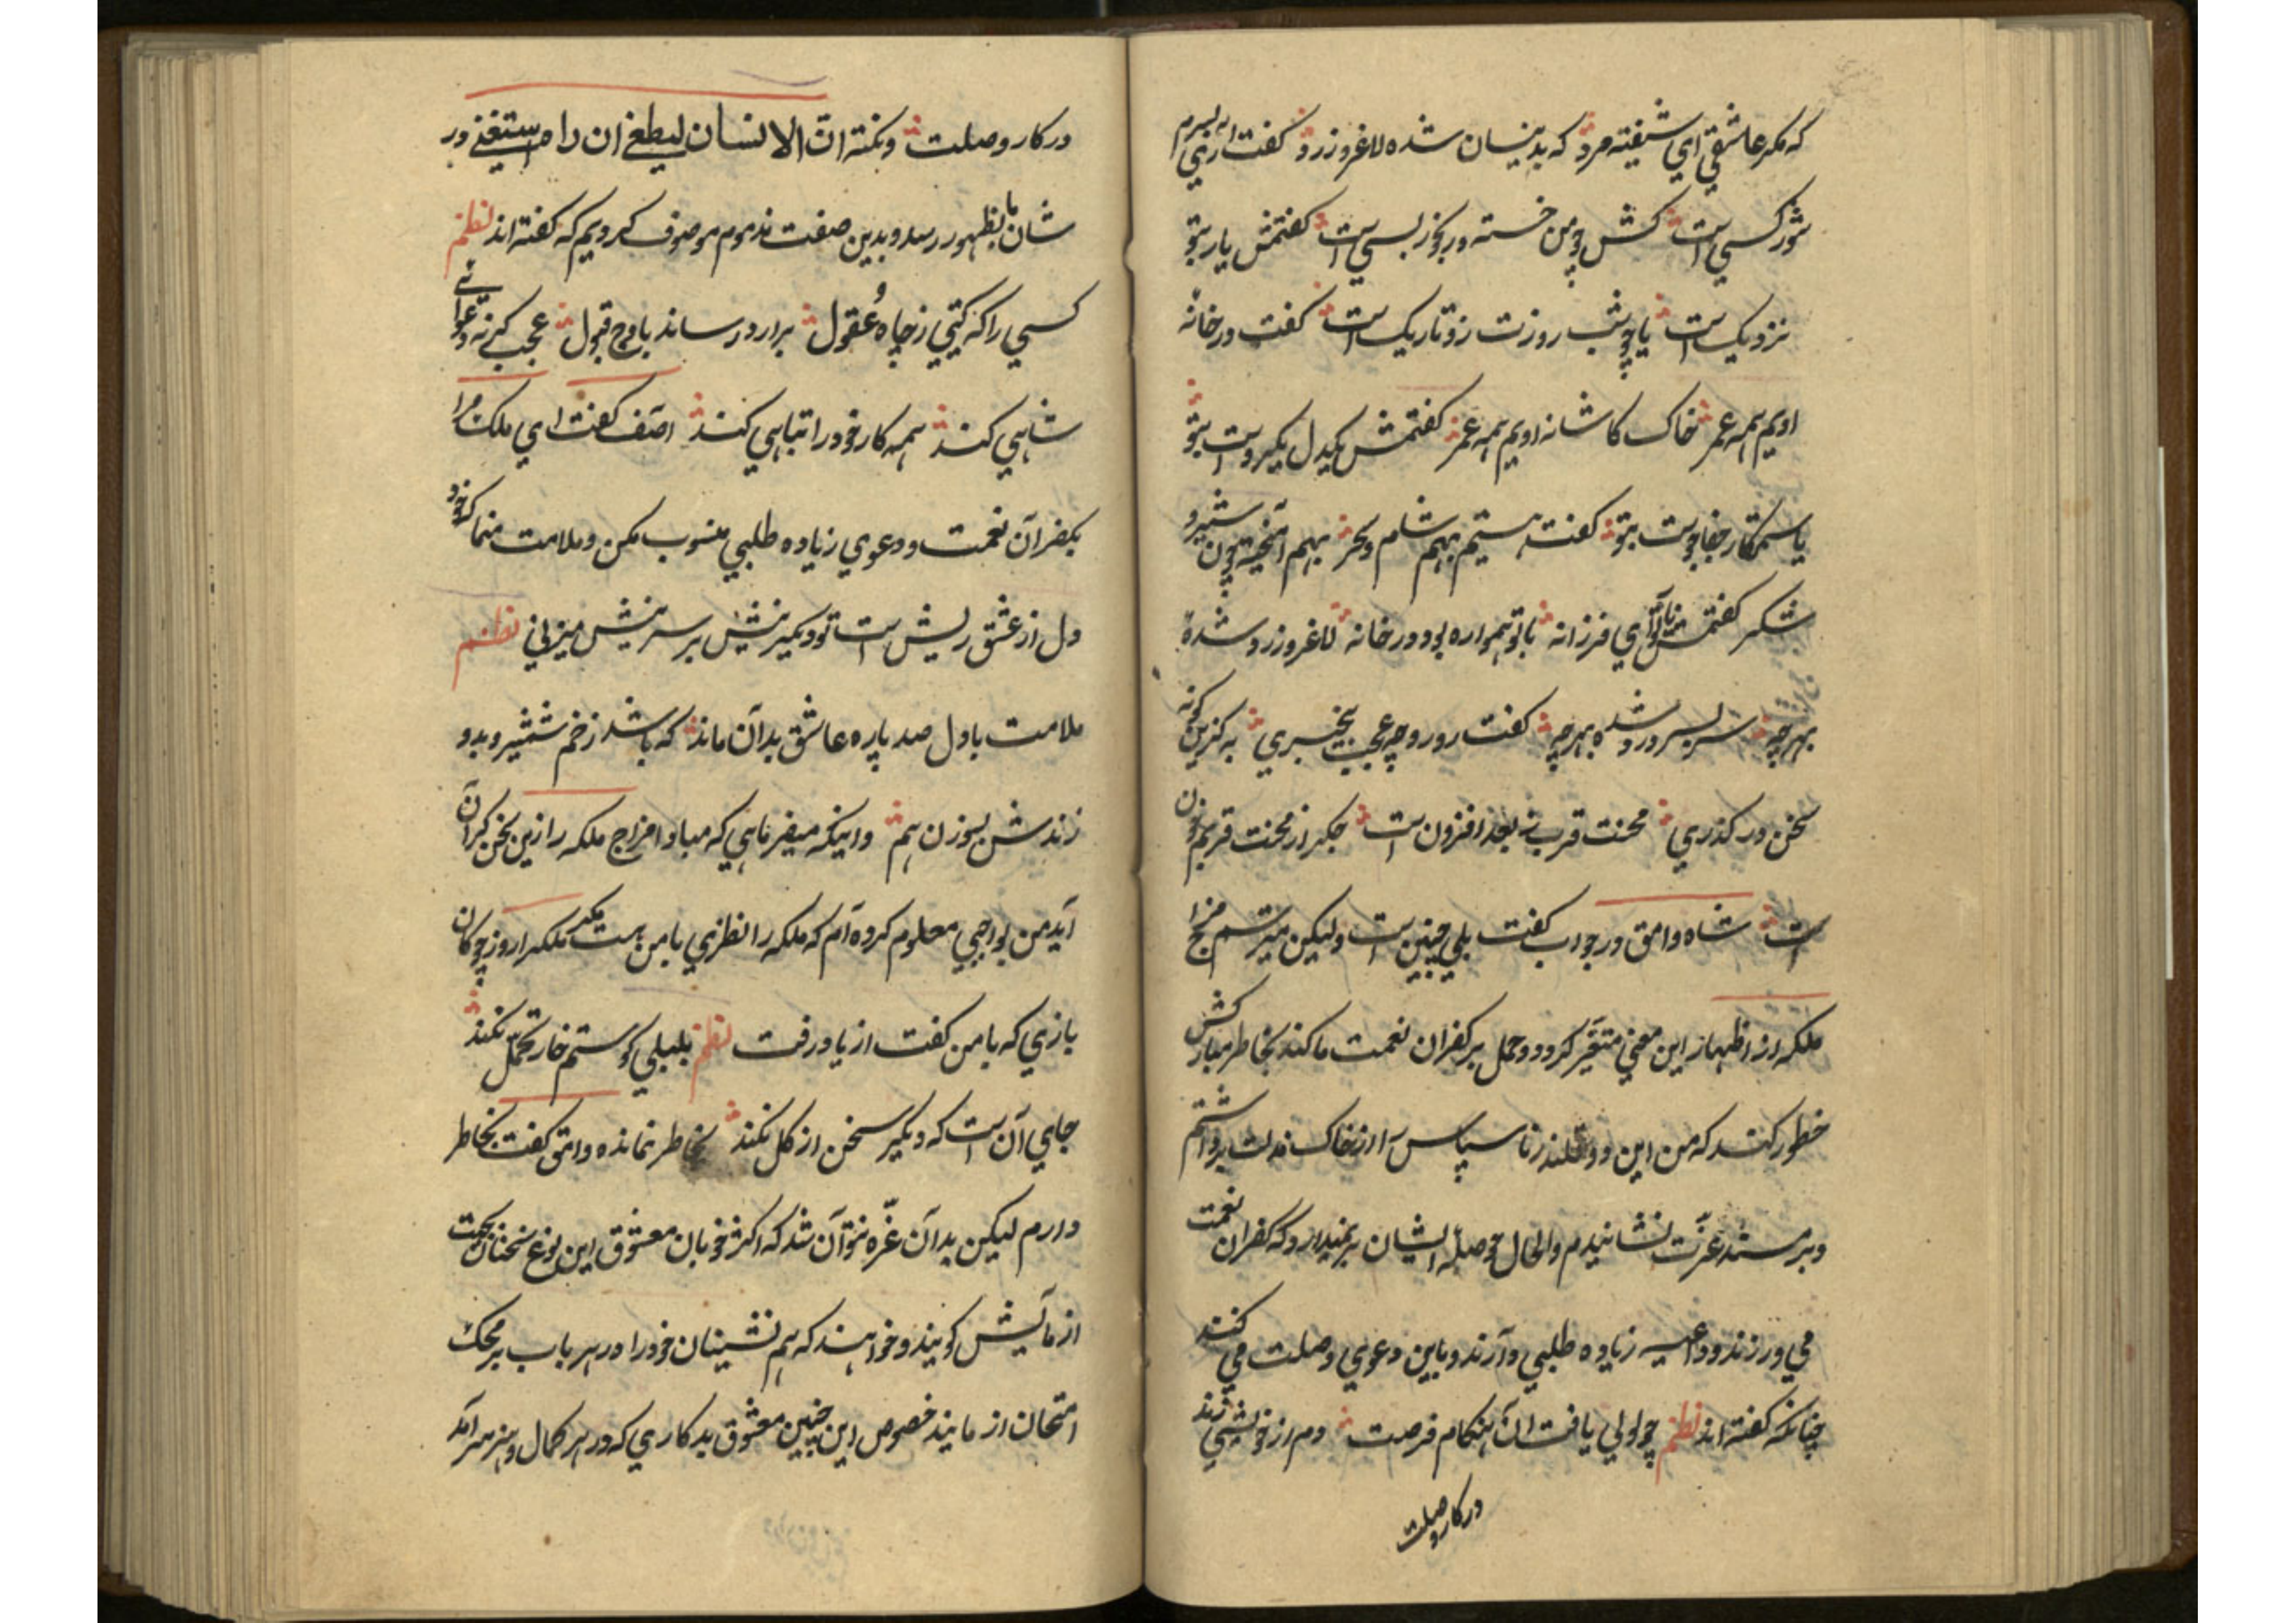 که مکر عاشقی ای شیفته مرد که بدینسان شده لاغر و زرد گفت آری بسرم
شور کسی است کش چو من خسته و رنجور بسی است گفتمش یار بتو
نزدیک است یا چو شب روزت زو تاریک است گفت در خانه
اویم همه عمر خاک کاشانه اویم همه عمر گفتمش یکدل و یکروست بتو
یا ستمکار جفاجوست بتو گفت هستیم بهم شام و سحر بهم آمیخته چون شیر و
شکر گفتمش یار تو ای فرزانه با تو همواره بود در خانه لاغر و زرد شده
بهرچه سر بسر درد شده بهرچه گفت رو رو چه عجب بیخبری به کزین گونه
سخن در گذری محنت قرب ز بعد افزون است جگر از محنت قربم خون
است شاه وامق در جواب گفت بلی چنین است ولیکن میترسم مزاج
ملکه از اظهار این معنی متغیر گردد و حمل بر کفران نعمت ما کند بخاطر مبارکش
خطور کند که من این دو قلندر ناسپاس را از خاک مذلت برداشتم
و بر مسند عزت نشانیدم والحال حوصله ایشان بر نمیدارد که کفران نعمت
می ورزند و داعیه زیاده طلبی دارند و باین دعوی وصلت می کنند
چنانکه گفته اند نظم چو لولی یافت آن هنگام فرصت دم از خویشی زند
در کار وصلت
در کار وصلت و نکته ان الانسان لیطغی ان راه استغنی در
شان ما بظهور رسد و بدین صفت مذموم موصوف گردیم که گفته اند نظم
کسی را که گیتی ز چاه عقول برآرد رساند باوج قبول عجب گر نه دعوای
شاهی کند همه کار خود را تباهی کند آصف گفت ای ملک مرا
بکفران نعمت و دعوی زیاده طلبی منسوب مکن و ملامت منما که خود
دل از عشق ریش است تو دیگر نیش بر سر نیش میزنی نظم
ملامت با دل صد پاره عاشق بدان ماند که باشد زخم شمشیر و بدو
زندش بسوزن هم و اینکه میفرمایی که مبادا مزاج ملکه را ازین سخن گران
آید من بواجبی معلوم کرده ام که ملکه را نظری با من هست مگر ملکه را روز چوگان
بازی که با من گفت از یاد رفت نظم بلبلی کو ستم خار تحمل نکند
جای آن است که دیگر سخن از گل نکند بخاطر نمانده وامق گفت بخاطر
دارم لیکن بدان غره نتوان شد که اکثر خوبان معشوق این نوع سخنان بجهت
آزمایش گویند و خواهند که هم نشینان خود را در هر باب بر محک
امتحان آزمایند خصوص این چنین معشوق پرکاری که در هر کمال و هنر سر آمد